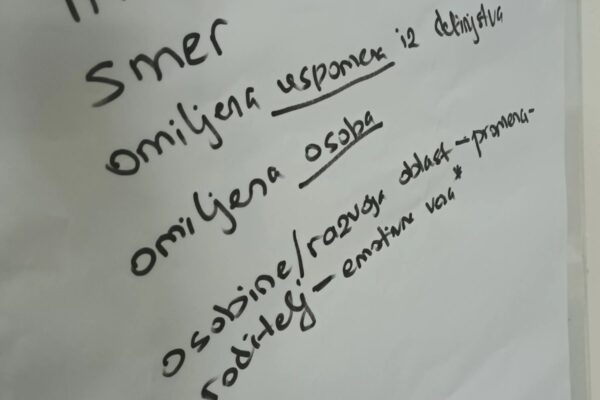 smer
omiljena uspomena iz detinjstva
omiljena osoba
osobine/razvoja oblast - promena-
roditelj - emotivna veza*